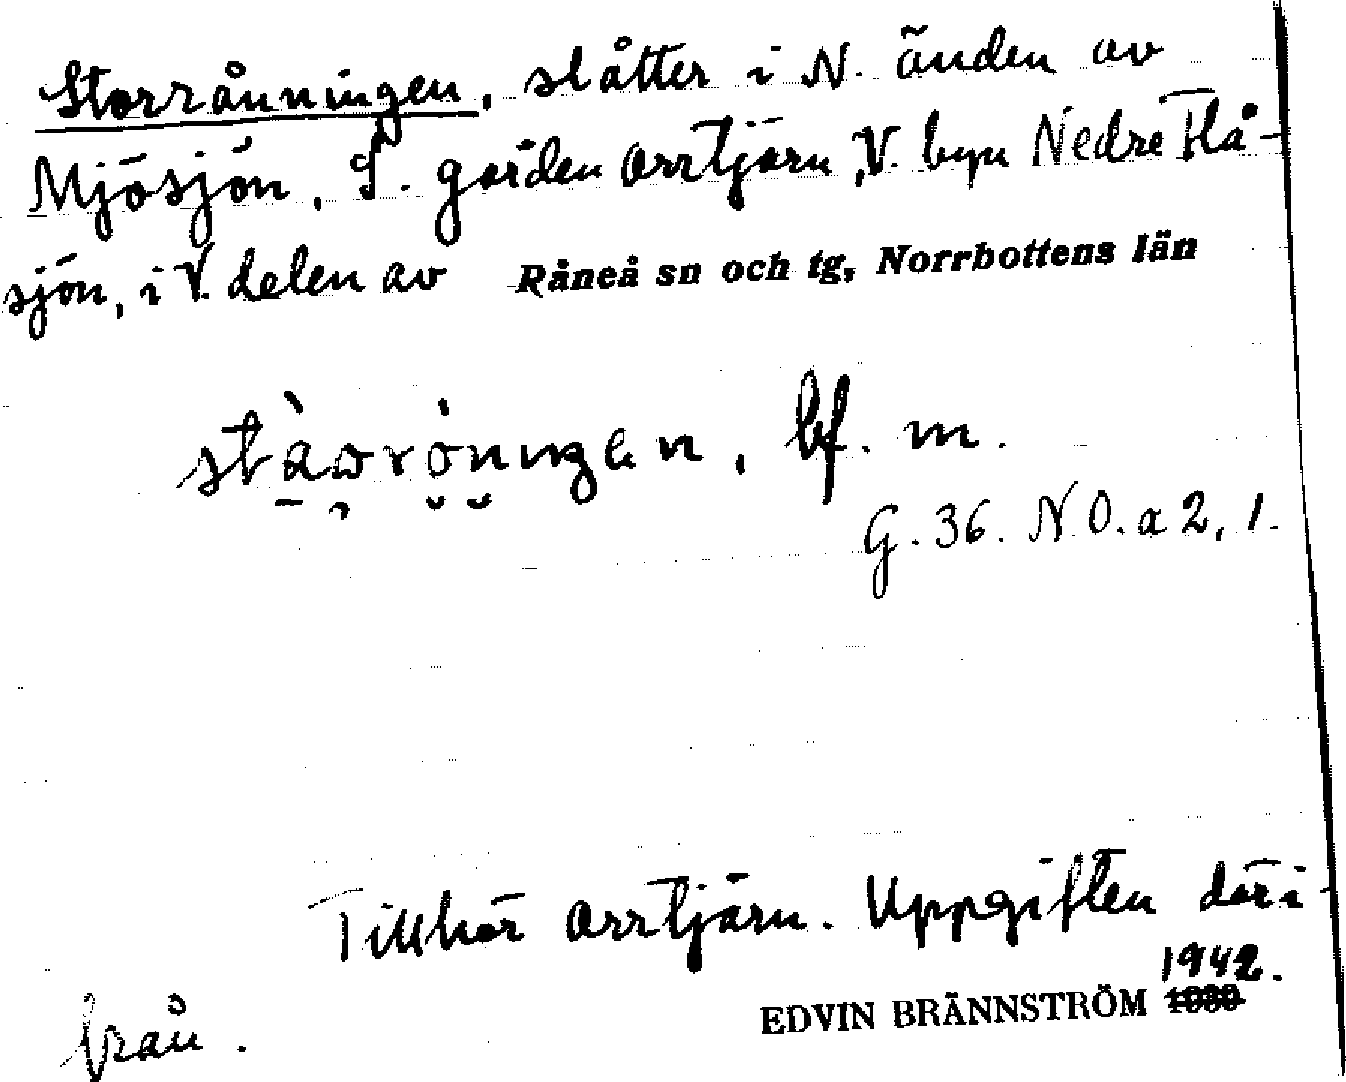 Storrånningen, slåtter i N. änden av
Mjösjön, S. gården Orrtjärn, V. byn Nedre Flå-
sjön, i V. delen av Råneå sn och tg, Norrbottens län
bf. m.
G. 36. N O. a 2, 1.
Tillhör Orrtjärn. Uppgiften däri-
från.
1942.
EDVIN BRÄNNSTRÖM 1930